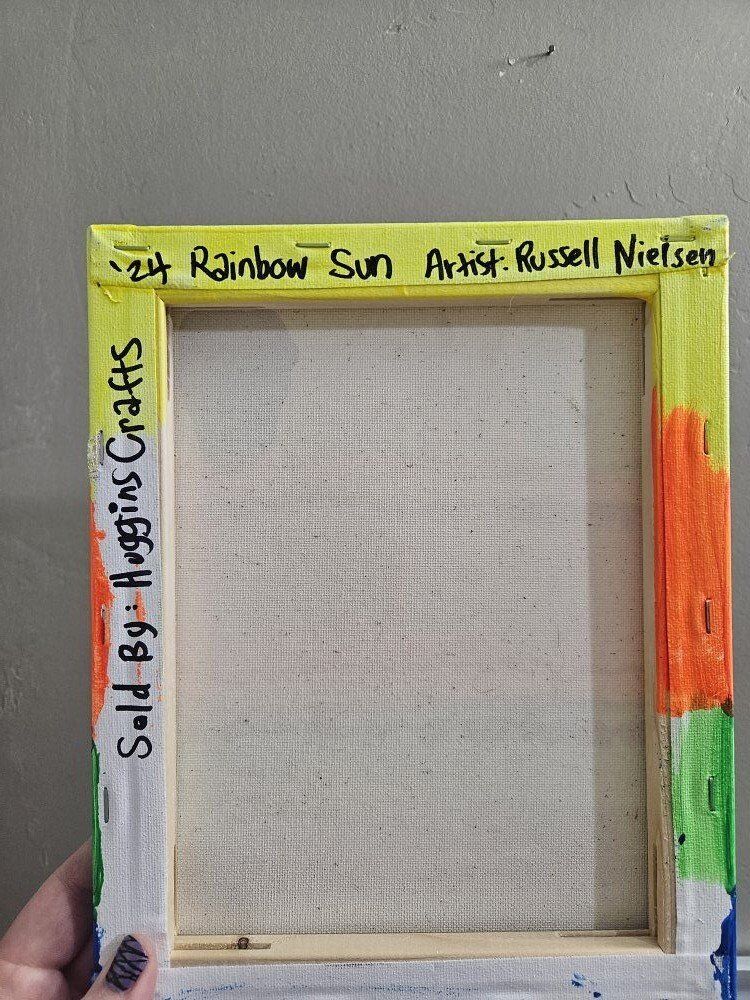 '24 Rainbow Sun Artist. Russell Nielsen
Sold By: Huggins Crafts